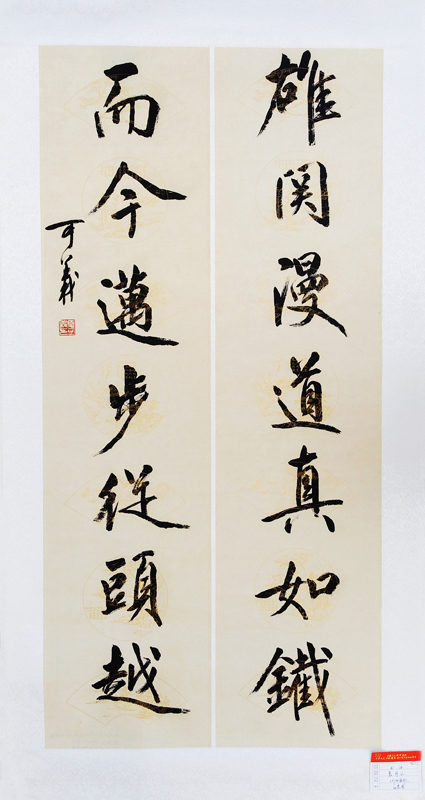 雄関漫道真如鐵
而今邁步從頭越
可義